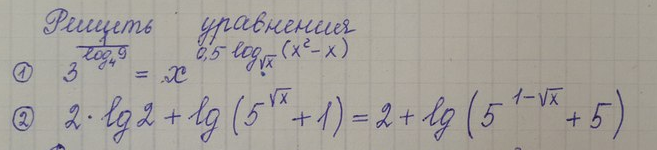 Решить уравнения
① 3^{\frac{1}{\log_4 9}} = x^{0,5 \log_{\sqrt{x}} (x^2 - x)}
② 2 \cdot \lg 2 + \lg (5^{\sqrt{x}} + 1) = 2 + \lg (5^{1 - \sqrt{x}} + 5)